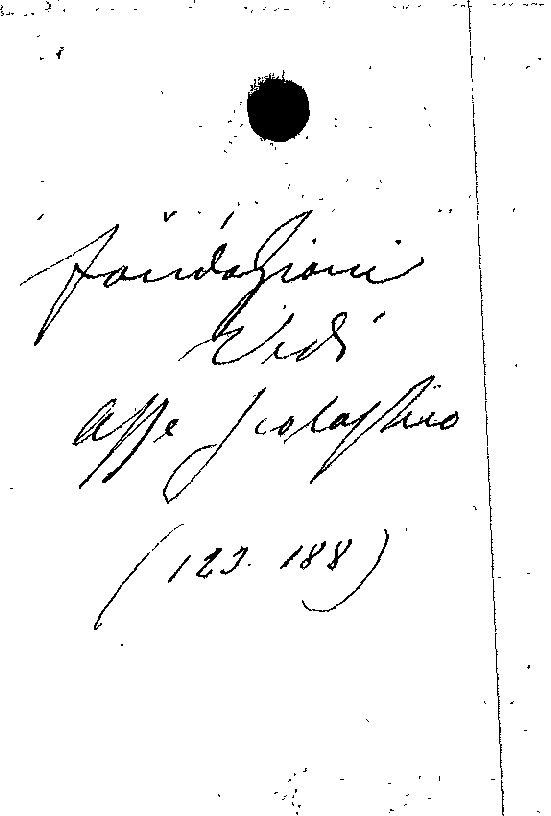 fondazioni
Vedi
Asse Scolastico
(123. 188)